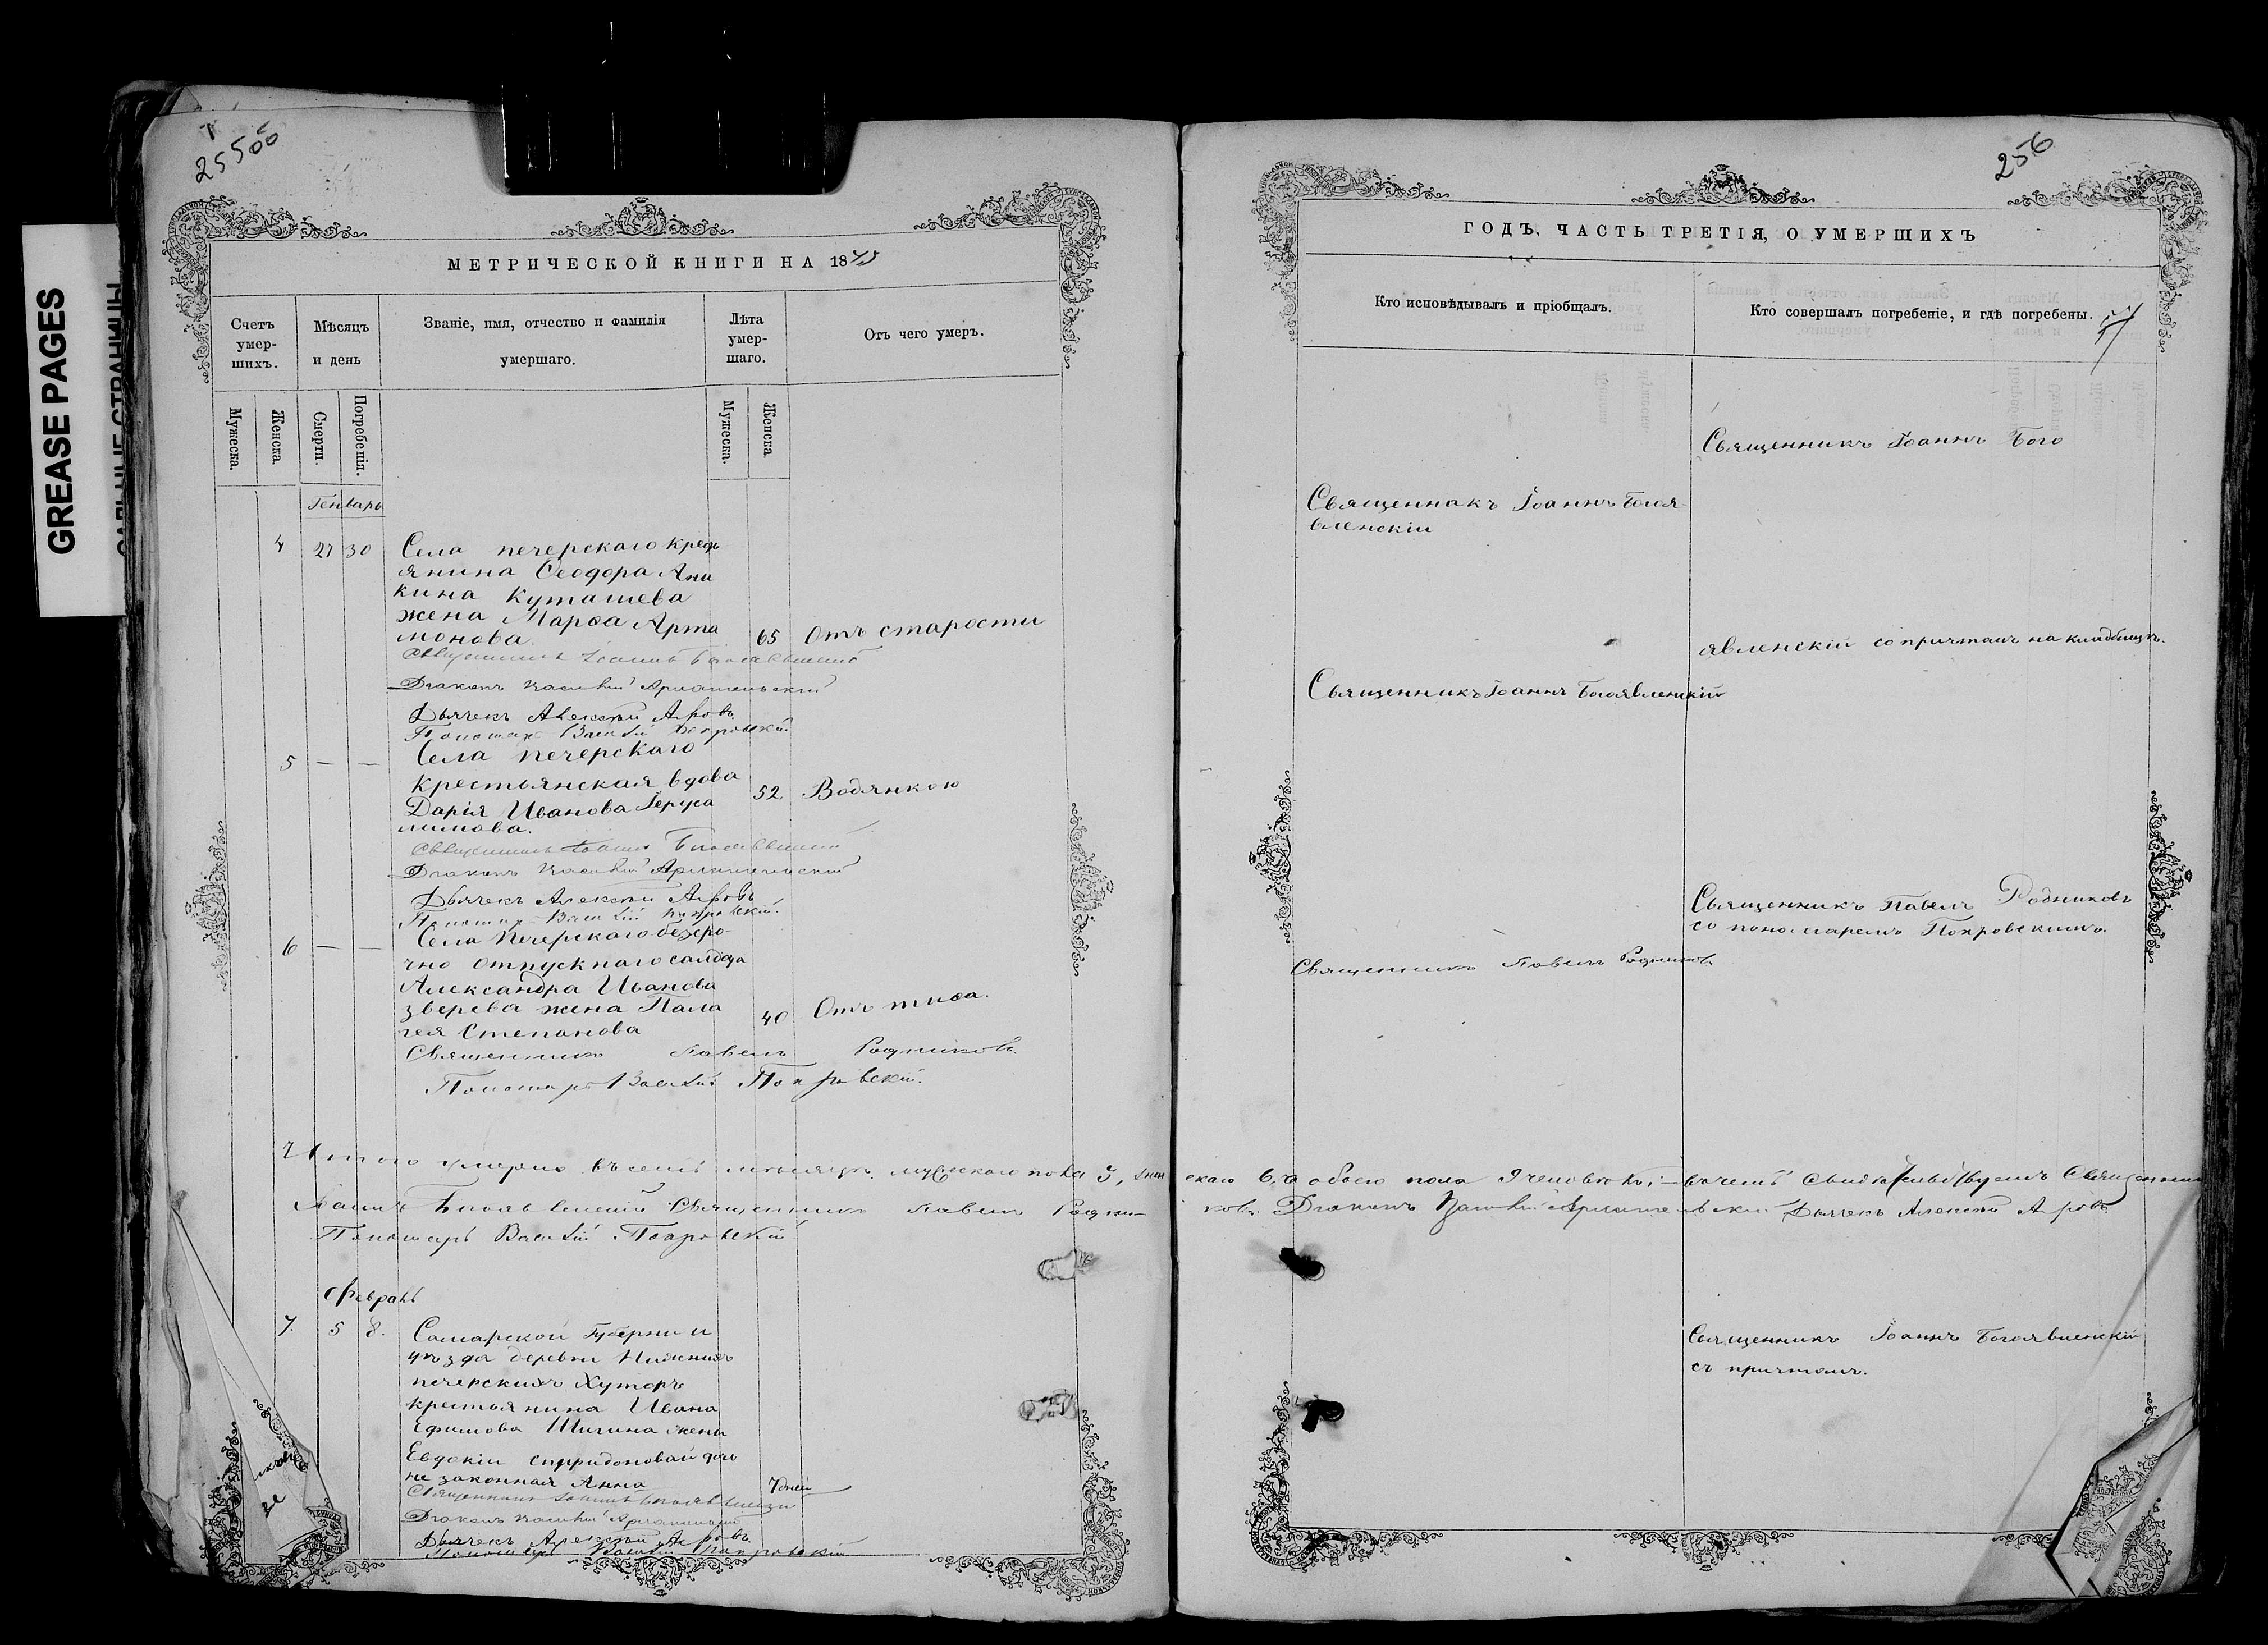 GREASE PAGES
255об
МЕТРИЧЕСКОЙ КНИГИ НА 18
Счетъ умер-шихъ.
Мѣсяцъ и день
Званіе, имя, отчество и фамилія умершаго.
Лѣта умер-шаго.
Отъ чего умеръ.
Мужеска.
Женска.
Смерти.
Погребенія.
Мужеска.
Женска
Генварь
4 27 30 Села печерскаго крест
янина Ѳеодора Ани
кина Куташева
жена Марѳа Арта
монова. 65 Отъ старости
Священникъ Іоаннъ Богоявленскій
Діаконъ
Дьячекъ Алексѣй
Пономарь Василій Покровскій
5 — — Села Печерскаго
крестьянская вдова
Дарія Иванова Іеруса
лимова. 52. Водянкою
Священникъ Іоаннъ Богоявленскій
Діаконъ
Дьячекъ Алексѣй
Пономарь Василій Покровскій.
6 — — Села Печерскаго безсро-
чно отпускнаго солдата
Александра Иванова
Зверева жена Пела
гея Степанова 40 Отъ тифа.
Священникъ Павелъ Родниковъ.
Пономарь Василій Покровскій.
Итого умерло въ семъ мѣсяцѣ мужескаго пола 3, жен
Іоаннъ Богоявленскій Священникъ Павелъ Родни-
Пономарь Василій Покровскій
Февраль
7. 5 8. Самарской Губерніи и
уѣзда деревни Нижнихъ
печерскихъ Хуторъ
крестьянина Ивана
Ефимова Шигина жены
Евдокіи Спиридоновой дочь
не законная Анна 7 дней
Священникъ Іоаннъ Богоявленскій
Діаконъ
Дьячекъ Алексѣй
Пономарь Василій Покровскій
256
ГОДЪ, ЧАСТЬ ТРЕТІЯ, О УМЕРШИХЪ
Кто исповѣдывалъ и пріобщалъ.
Кто совершалъ погребеніе, и гдѣ погребены.
Священникъ Іоаннъ Бого
Священнакъ Іоаннъ Богоя-
вленскій
явленскій со причтомъ на кладбищѣ.
Священникъ Іоаннъ Богоявленскій
Священникъ Павелъ Родниковъ
со пономаремъ Покровскимъ.
Священникъ Павелъ Родниковъ
скаго 6, а обоего пола 9 человѣкъ; — въ чемъ свидѣтельствуемъ Священникъ
ковъ. Діаконъ Дьячекъ Алексѣй
Священникъ Іоаннъ Богоявленскій
съ причтомъ.